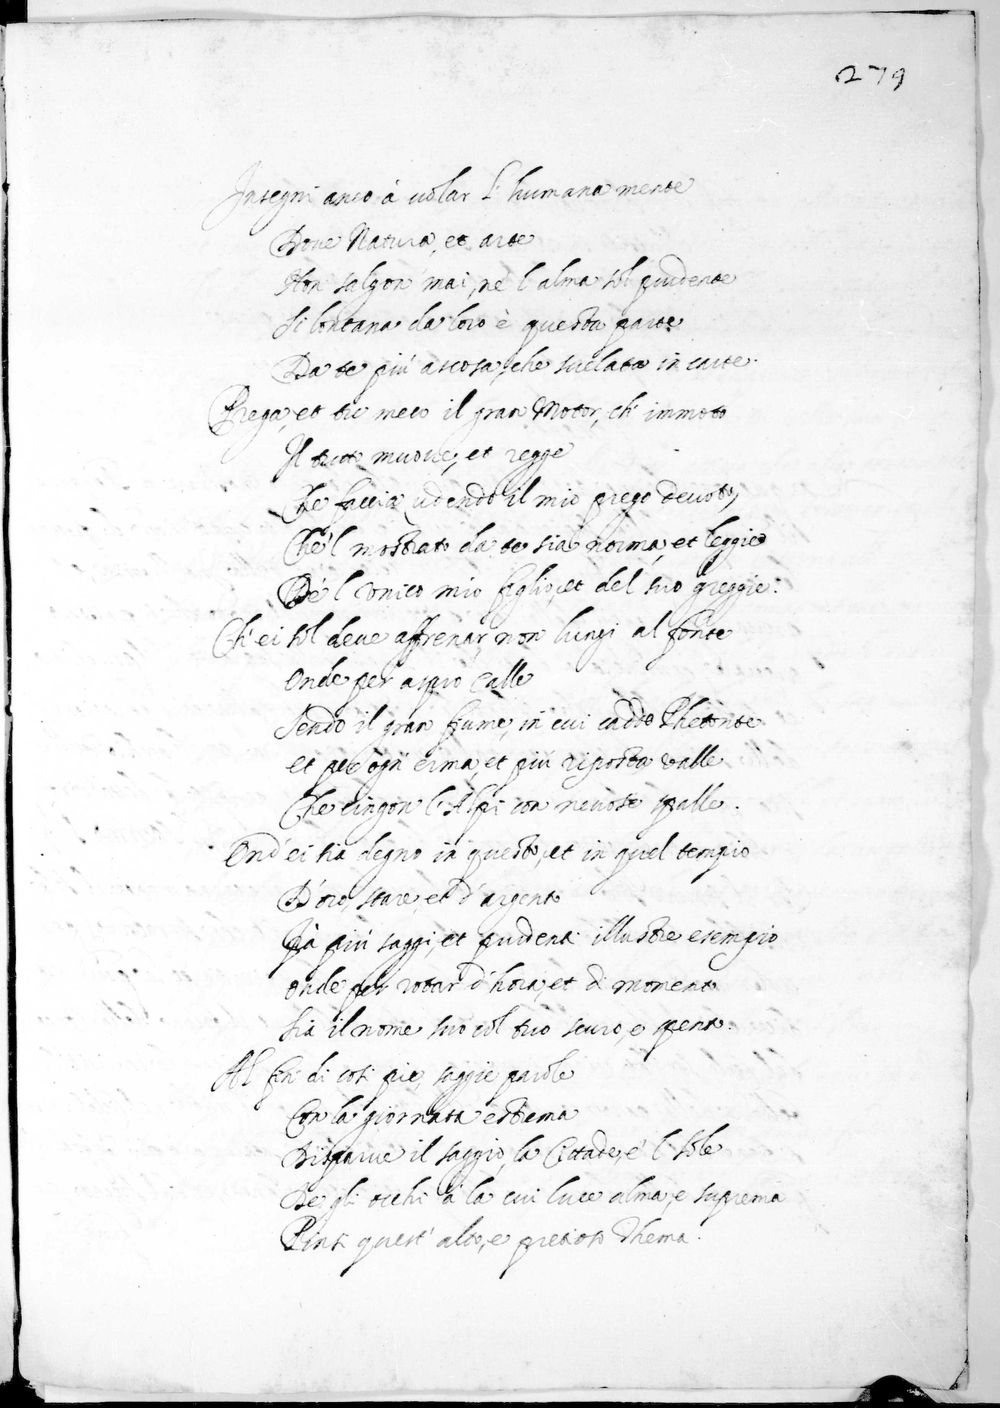 279
Insegni anco à uolar l'humana mente
Doue Natura, et arte
Non salgon mai, nè l'alma sol prudente
Si lontana da loro è questa parte
Da te più ascosa, che suelata in carte.
Prega, et tu meco il gran Motor, ch' immoto
Il tutto muoue, et regge
Che faccia udendo il mio prego deuoto,
Che'l mostrato da te sia norma, et legge
De l'unico mio figlio, et del suo gregge.
Ch'ei sol deue affrenar, non lungi al fonte
Onde per aspro calle
Sendo il gran fiume, in cui cadde Phetonte
et per ogn' erma, et più riposta ualle
Che cingon l'Alpi con neuose spalle.
Ond'ei sia degno in questo, et in quel tempio
D'oro, stare, et d'argento
Fra più saggi, et prudenti illustre esempio
Onde per rotar d'hora, et di momento
Sia il nome suo col tuo securo, e spento.
Al fin di così pie, saggie parole
Con la giornata estrema
Disparue il saggio, la Cittade, e 'l sole
De gli occhi à la cui luce alma, e suprema
Pinsi quest' alto, e pretioso Thema.